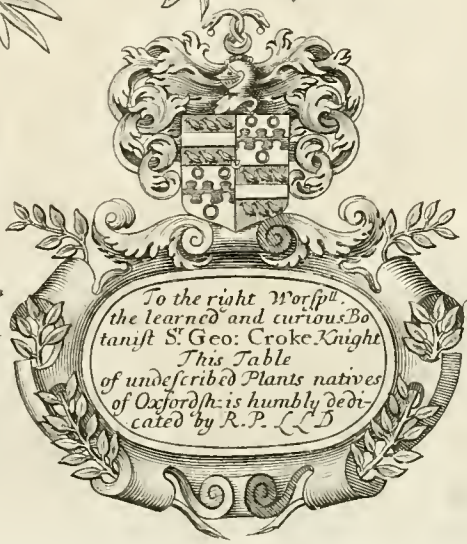 To the right Worspˡˡ.
the learned and curious Bo
taniſt Sʳ. Geo: Croke Knight
This Table
of undeſcribed Plants natives
of Oxfordſh: is humbly dedi-
cated by R. P. LLD